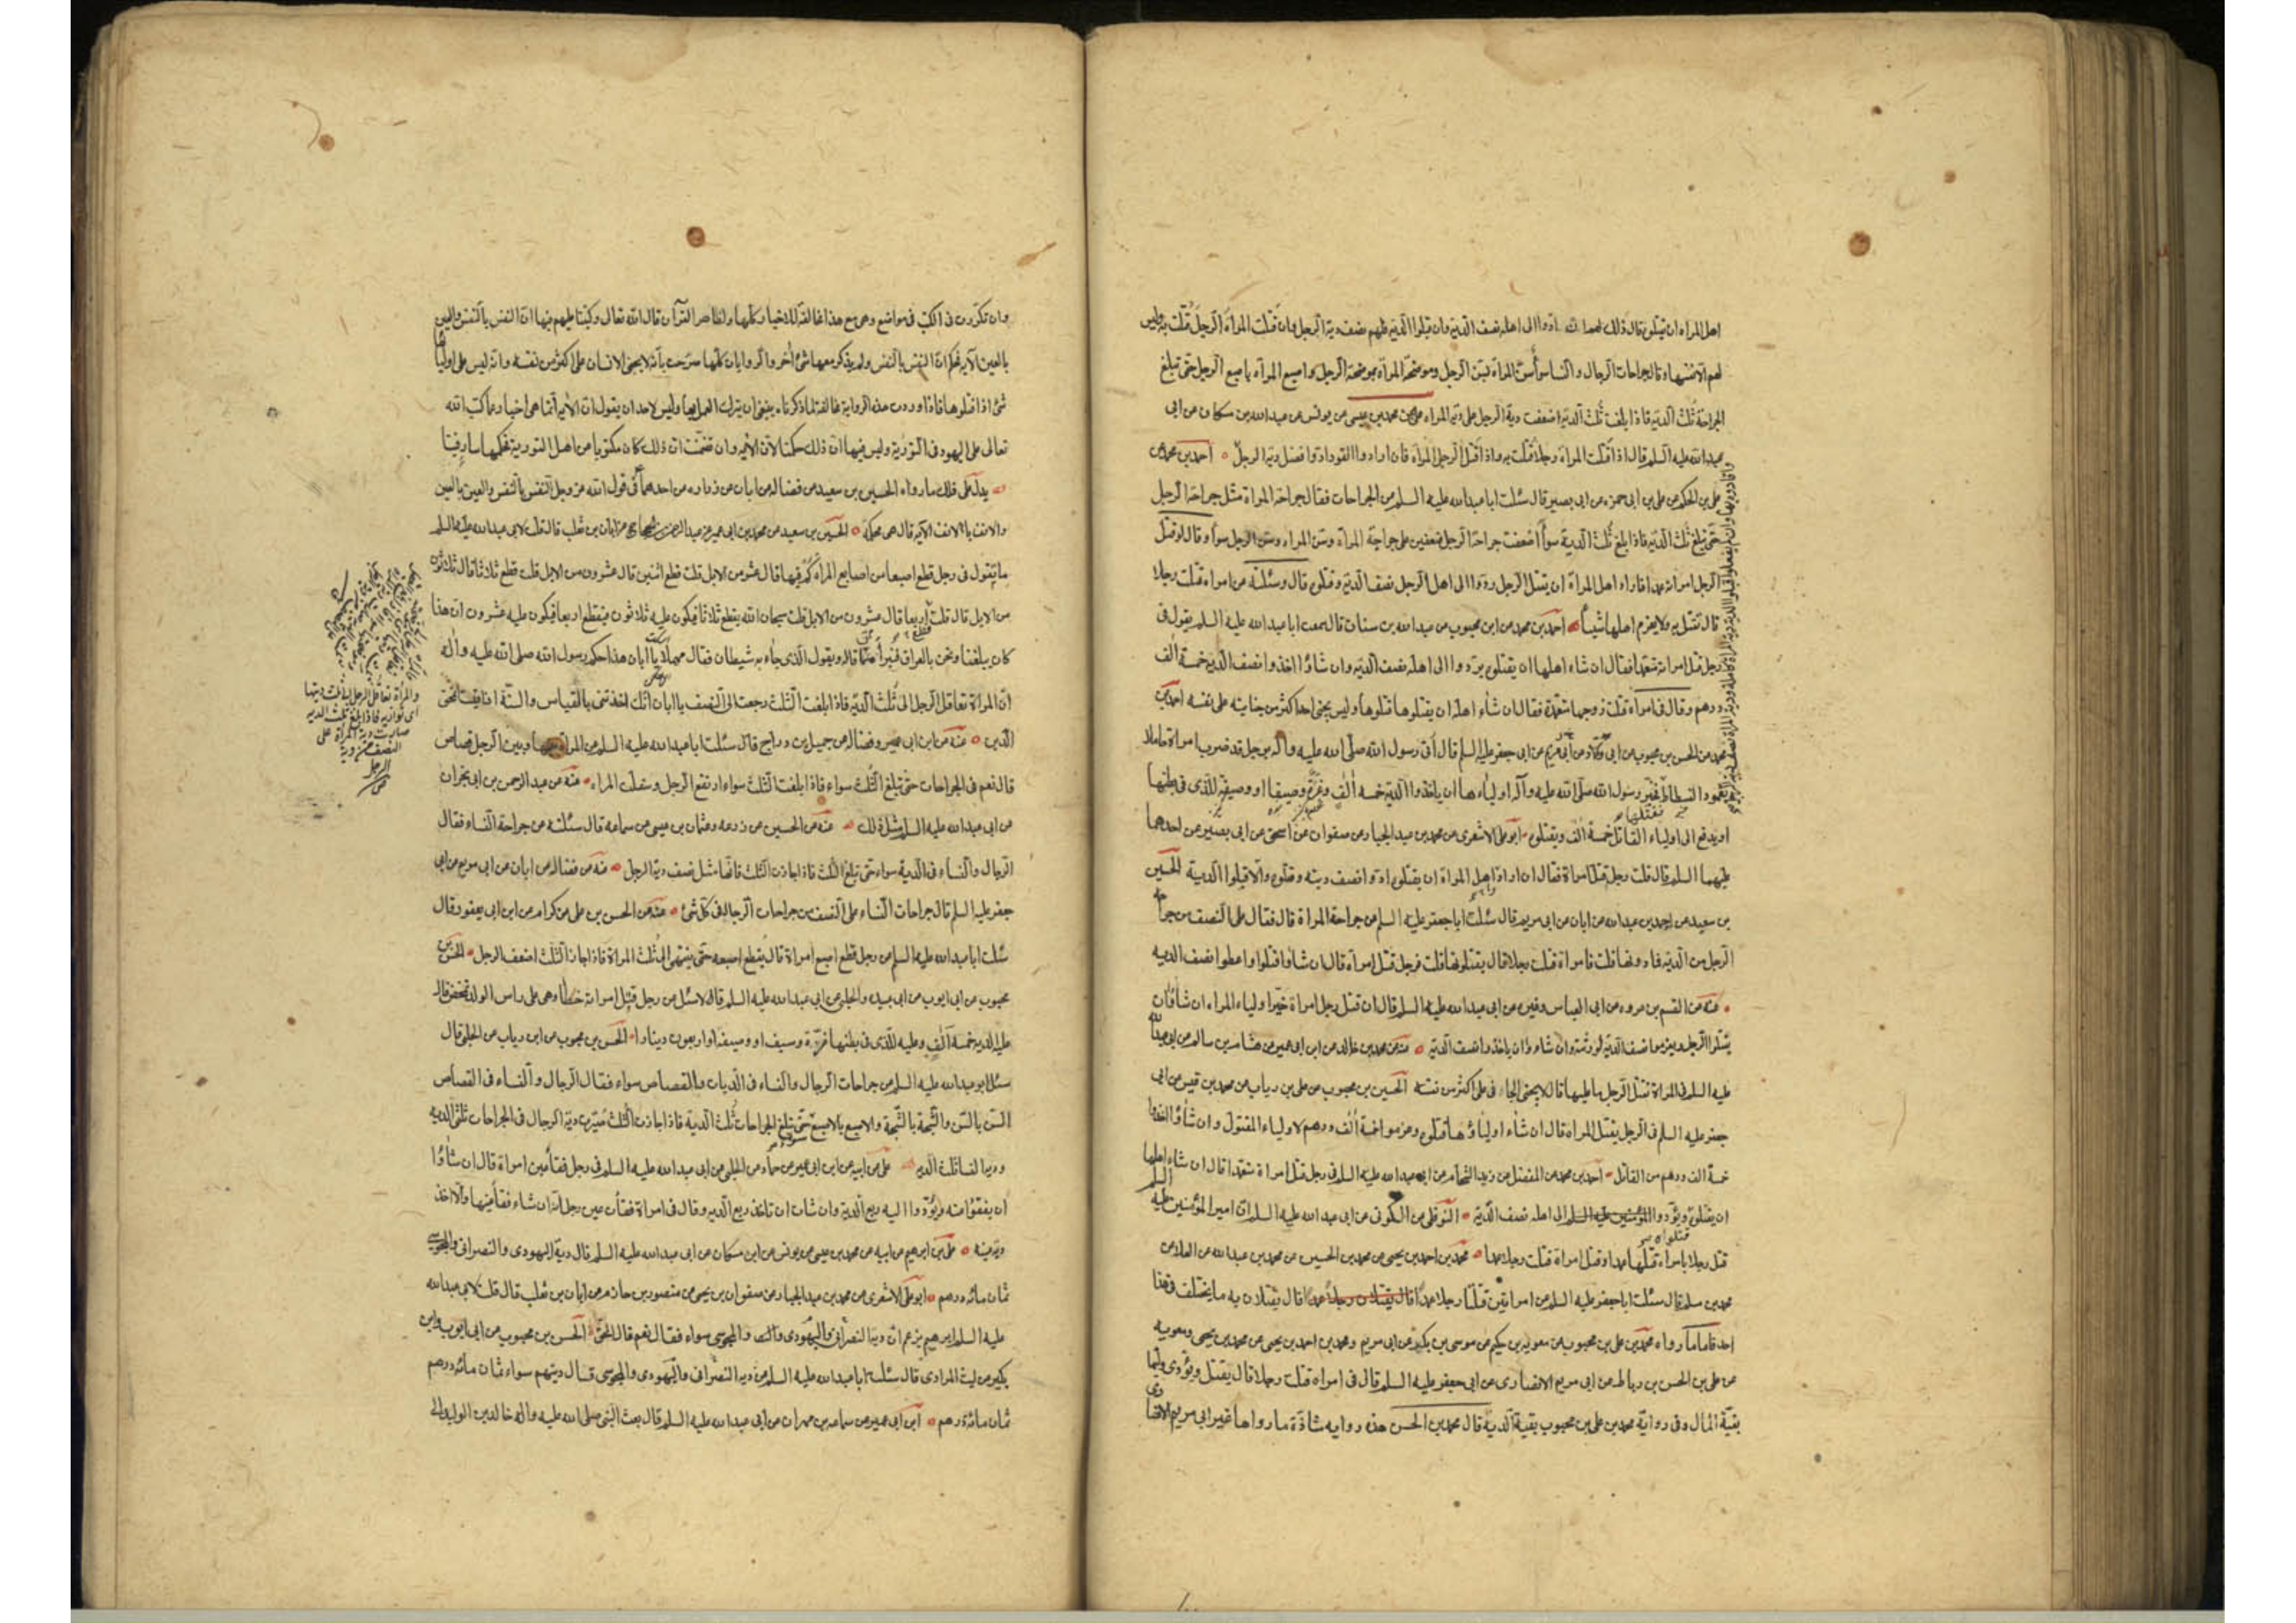 اهل المراة ان يقتلوه قال ذلك لهم اذا ادوا الى اهله نصف الدية وان قبلوا الدية فلهم نصف دية الرجل وان قتلت المراة الرجل قتلت به وليس
لهم الا نفسها وقال جراحات الرجال والنساء سواء سن المراة بسن الرجل وموضحة المراة بموضحة الرجل واصبع المراة باصبع الرجل حتى تبلغ
الجراحة ثلث الدية فاذا بلغت ثلث الدية اضعفت دية الرجل على دية المراة محمد بن عيسى عن يونس عن عبدالله بن مسكان عن ابى
عبدالله عليه السلم قال اذا قتلت المراة رجلا قتلت به واذا قتل الرجل المراة فان ارادوا القود ادوا فضل دية الرجل احمد بن محمد عن
على بن الحكم عن على بن ابى حمزه عن ابى بصير قال سئلت ابا عبدالله عليه السلم عن الجراحات فقال جراحة المراة مثل جراحة الرجل
حتى تبلغ ثلث الدية فاذا بلغ ثلث الدية سواء اضعفت جراحة الرجل ضعفين على جراحة المراة وسن المراه وسن الرجل سواء وقال لو قتل
الرجل امراته عمدا فاراد اهل المراة ان يقتلوا الرجل ردوا الى اهل الرجل نصف الدية وقتلوه قال وسئلته عن امراه قتلت رجلا
قال تقتل به ولا يغرم اهلها شيئا احمد بن محمد عن ابن محبوب عن عبدالله بن سنان قال سمعت ابا عبدالله عليه السلم يقول فى
رجل قتل امراته متعمدا فقال ان شاء اهلها ان يقتلوه يردوا الى اهله نصف الدية وان شاؤا اخذوا نصف الدية خمسة الف
درهم وقال فى امراة قتلت زوجها متعمدة فقال ان شاء اهله ان يقتلوها قتلوها وليس يجنى احد اكثر من جنايته على نفسه احمد بن
محمد عن الحسن بن محبوب عن ابى ولاد عن ابى مريم عن ابى جعفر عليه السلم قال اتى رسول الله صلى الله عليه واله برجل قد ضرب امراة حاملا
بعمود الفسطاط فخير رسول الله صلى الله عليه وآله اولياءها ان ياخذوا الدية خمسه الف وغرة وصيف او وصيفة للذى فى بطنها
او يدفع الى اولياء القاتل خمسة الف ويقتلوه ابو على الاشعرى عن محمد بن عبد الجبار عن صفوان عن اسحق عن ابى بصير عن احدهما
عليهما السلم قال قلت رجل قتل امراة فقال ان اراد اهل المراة ان يقتلوه ادوا نصف ديته وقتلوه والا قبلوا الدية الحسين
بن سعيد عن احمد بن عبدالله عن ابان عن ابى مريم قال سئلت ابا جعفر عليه السلم عن جراحة المراة قال فقال على النصف من جراحة
الرجل من الدية فما دونها قلت فامراة قتلت رجلا قال يقتلونها قلت فرجل قتل امراة قال ان شاؤا قتلوا واعطوا نصف الديه
عنه عن القسم بن عروه عن ابى العباس وغيره عن ابى عبدالله عليه السلم قال ان قتل رجل امراة خير اولياء المراه ان شاؤا ان
يقتلوا الرجل ويغرموا نصف الدية لورثته وان شاءوا ان ياخذوا نصف الدية عنه عن محمد بن خالد عن ابن ابى عمير عن هشام بن سالم عن ابى عبدالله
عليه السلم فى المراة تقتل الرجل ما عليها قال لا يجنى الجانى على اكثر من نفسه الحسين بن محبوب عن على بن رياب عن محمد بن قيس عن ابى
جعفر عليه السلم فى الرجل يقتل المراه قال ان شاء اولياؤها قتلوه وغرموا خمسة الف درهم لاولياء المقتول وان شاؤا اخذوا
خمسة الف درهم من القاتل احمد بن محمد عن المفضل عن زيد الشحام عن ابى عبدالله عليه السلم فى رجل قتل امراة متعمدا قال ان شاء اهلها
ان يقتلوه ويؤدوا الى اهله نصف الدية النوفلى عن السكونى عن ابى عبدالله عليه السلم ان امير المؤمنين عليه السلم
قتل رجلا بامراه قتلها عمدا وقتل امراة قتلت رجلا عمدا محمد بن احمد بن يحيى عن محمد بن الحسين عن محمد بن عبدالله عن العلا عن
محمد بن مسلم قال سئلت ابا جعفر عليه السلم عن امراتين قتلتا رجلا عمدا قال يقتلان به ما يختلف فى هذا
احد فاما ما رواه محمد بن على بن محبوب عن معوية بن حكيم عن موسى بن بكير عن ابى مريم ومحمد بن احمد بن يحيى عن محمد بن يحيى ومعويه
عن على بن الحسن بن رباط عن ابى مريم الانصارى عن ابى جعفر عليه السلم قال فى امراه قتلت رجلا قال يقتل ويؤدى وليها
بقية المال وفى رواية محمد بن على بن محبوب بقية الدية قال محمد بن الحسن هذه روايه شاذة ما رواها غير ابى مريم الانصارى
وان تكررت فى الكتب فى مواضع وهى مع هذا مخالفة للاخبار كلها ولظاهر القرآن قال الله تعالى وكتبنا عليهم فيها ان النفس بالنفس والعين
بالعين الآيه فحكم ان النفس بالنفس ولم يذكر معها شئ اخر والروايات كلها صرحت بانه لا يجنى الانسان على اكثر من نفسه وانه ليس على اوليائها
شئ اذا قتلوها فاذا وردت هذه الرواية مخالفة لما ذكرناه ينبغى ان يترك العمل بها وليس لاحد ان يقول ان الآيه انما هى اخبار عما كتب الله
تعالى على اليهود فى التورية وليس فيها ان ذلك حكمنا لان الآيه وان تضمنت ان ذلك كان مكتوبا من اهل التورية فحكمها سار فينا
يدل على ذلك ما رواه الحسين بن سعيد عن فضاله عن ابان عن زراره عن احدهما فى قول الله عز وجل النفس بالنفس والعين بالعين
والانف بالانف الآيه قال هى محكمة الحسين بن سعيد عن محمد بن ابى عمير عن عبدالرحمن بن الحجاج عن ابان بن تغلب قال قلت لابى عبدالله عليه السلم
ما تقول فى رجل قطع اصبعا من اصابع المراة كم فيها قال عشر من الابل قلت قطع اثنين قال عشرون من الابل قلت قطع ثلاثا قال ثلاثون
من الابل قال قلت اربعا قال عشرون من الابل قلت سبحان الله يقطع ثلاثا فيكون عليه ثلاثون فيقطع اربعا فيكون عليه عشرون ان هذا
كان يبلغنا ونحن بالعراق فنبرأ ممن قاله ونقول الذى جاء به شيطان فقال مهلا يا ابان هذا حكم رسول الله صلى الله عليه واله
ان المراة تعاقل الرجل الى ثلث الدية فاذا بلغت الثلث رجعت الى النصف يا ابان انك اخذتنى بالقياس والسنة اذا قيست محق
الدين عنه عن ابن ابى عمير وفضاله عن جميل بن دراج قال سئلت ابا عبدالله عليه السلم عن المراة بينها وبين الرجل قصاص
قال نعم فى الجراحات حتى تبلغ الثلث سواء فاذا بلغت الثلث سواء ارتفع الرجل وسفلت المراه عنه عن عبد الرحمن بن ابى نجران
عن ابى عبدالله عليه السلم مثل ذلك عنه عن الحسين عن زرعه وعثمان بن عيسى عن سماعه قال سئلته عن جراحة النساء فقال
الرجال والنساء فى الدية سواء حتى تبلغ الثلث فاذا جازت الثلث فانها مثل نصف دية الرجل عنه عن فضاله عن ابان عن ابى مريم عن ابى
جعفر عليه السلم قال جراحات النساء على النصف من جراحات الرجال فى كل شئ عنه عن الحسن بن على عن كرام عن ابن ابى يعفور قال
سئلت ابا عبدالله عليه السلم عن رجل قطع اصبع امراة قال يقطع اصبعه حتى ينتهى الى ثلث المراة فاذا جاز الثلث اضعف الرجل الحسن بن
محبوب عن ابى ايوب عن ابى عبيده والحلبى عن ابى عبدالله عليه السلم قال سئل عن رجل قتل امراته خطأ وهى على راس الولد تمخض قال
عليه الدية خمسة آلف وعليه للذى فى بطنها غرة وصيف او وصيفه او اربعون دينارا الحسن بن محبوب عن ابن رياب عن الحلبى قال
سئل ابو عبدالله عليه السلم عن جراحات الرجال والنساء فى الديات والقصاص سواء فقال الرجال والنساء فى القصاص
السن بالسن والشجة بالشجة والاصبع بالاصبع سواء حتى تبلغ الجراحات ثلث الدية فاذا جازت الثلث صيرت دية الرجال فى الجراحات ثلثى الديه
ودية النساء ثلث الديه على عن ابيه عن ابن ابى عمير عن حماد عن الحلبى عن ابى عبدالله عليه السلم فى رجل فقأ عين امراة قال ان شاؤا
ان يفقؤا عينه ويؤدوا اليه ربع الدية وان شاءت ان تاخذ ربع الديه وقال فى امراة فقأت عين رجل انه ان شاء فقأ عينها والا اخذ
دية عينه على بن ابرهيم عن ابيه عن محمد بن عيسى عن يونس عن ابن مسكان عن ابى عبدالله عليه السلم قال دية اليهودى والنصرانى والمجوسى
ثمان مائه درهم ابو على الاشعرى عن محمد بن عبد الجبار عن صفوان بن يحيى عن منصور بن حازم عن ابان بن تغلب قال قلت لابى عبدالله
عليه السلم ابرهيم يزعم ان دية النصرانى واليهودى والمجوسى سواء فقال نعم قال الحق الحسن بن محبوب عن ابى ايوب وابن
بكير عن ليث المرادى قال سئلت ابا عبدالله عليه السلم عن دية النصرانى واليهودى والمجوسى قال ديتهم سواء ثمان مائه درهم
ثمان مائة درهم ابن ابى عمير عن سماعه بن مهران عن ابى عبدالله عليه السلم قال بعث النبى صلى الله عليه واله خالد بن الوليد الى
والمرأة تعاقل الرجل الى ثلث ديتها
اى توازيه فاذا بلغ ثلث الديه
صارت دية المرأة على
النصف من دية
الرجل